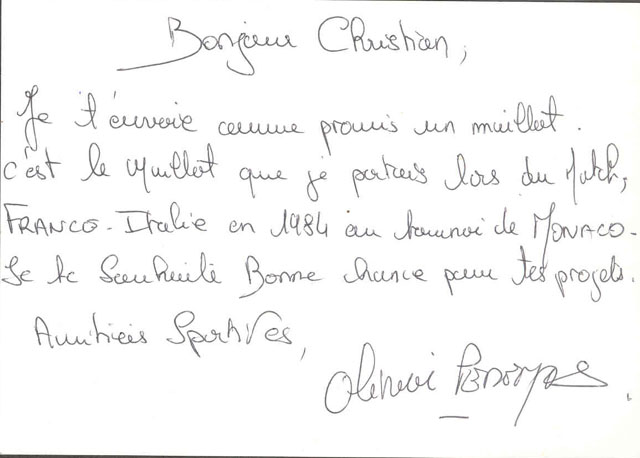 Bonjour Christian,
Je t'envoie comme promis un maillot.
c'est le Maillot que je portais lors du Match,
FRANCO-Italie en 1984 au tournoi de MONACO-
Je te Souhaite Bonne chance pour tes projets.
Amitiées Sportives,